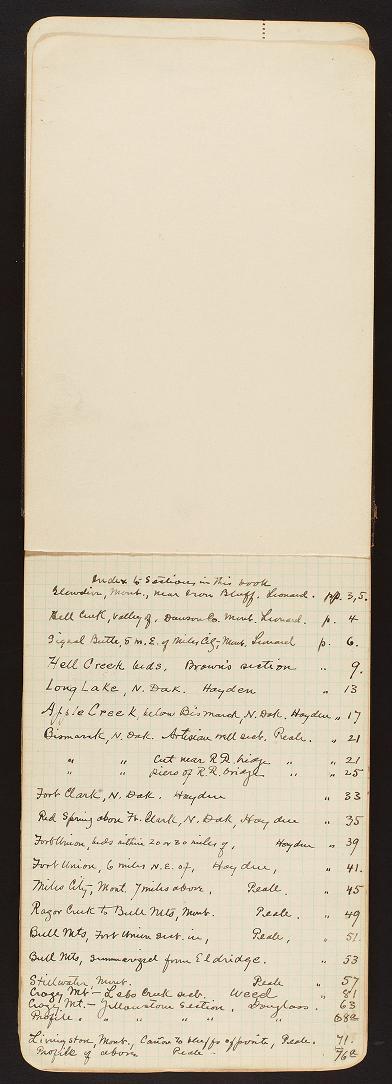 Index to Sections in this book
Glendive, Mont., near Iron Bluff. Leonard. pp. 3, 5.
Hell Creek, Valley of, Dawson Co. Mont. Leonard. p. 4
Signal Butte, 5 m. E. of Miles City, Mont. Leonard p. 6.
Hell Creek beds. Brown's section " 9.
Long Lake, N. Dak. Hayden " 13
Apple Creek, below Bismarck, N. Dak. Hayden " 17
Bismarck, N. Dak. Artesian well sect. Peale. " 21
" " Cut near R.R. bridge " " 21
" " piers of R.R. bridge " " 25
Fort Clark, N. Dak. Hayden " 33
Red Spring above Ft. Clark, N. Dak, Hayden " 35
Fort Union, beds within 20 or 30 miles of, Hayden " 39
Fort Union, 6 miles N.E. of, Hayden, " 41.
Miles City, Mont. 7 miles above, Peale. " 45
Razor Creek to Bull Mts, Mont. Peale. " 49
Bull Mts, Fort Union sect. in, Peale, " 51.
Bull Mts, summarized from Eldridge. " 53
Stillwater, Mont. Peale " 57
Crazy Mt.- Lebo Creek sect. Weed " 81
Crazy Mt.- Yellowstone Section, Douglass. " 63
Profile " " " " " 68a
Livingston, Mont., Cañon to bluffs opposite, Peale. 71.
Profile of above Peale - 76a